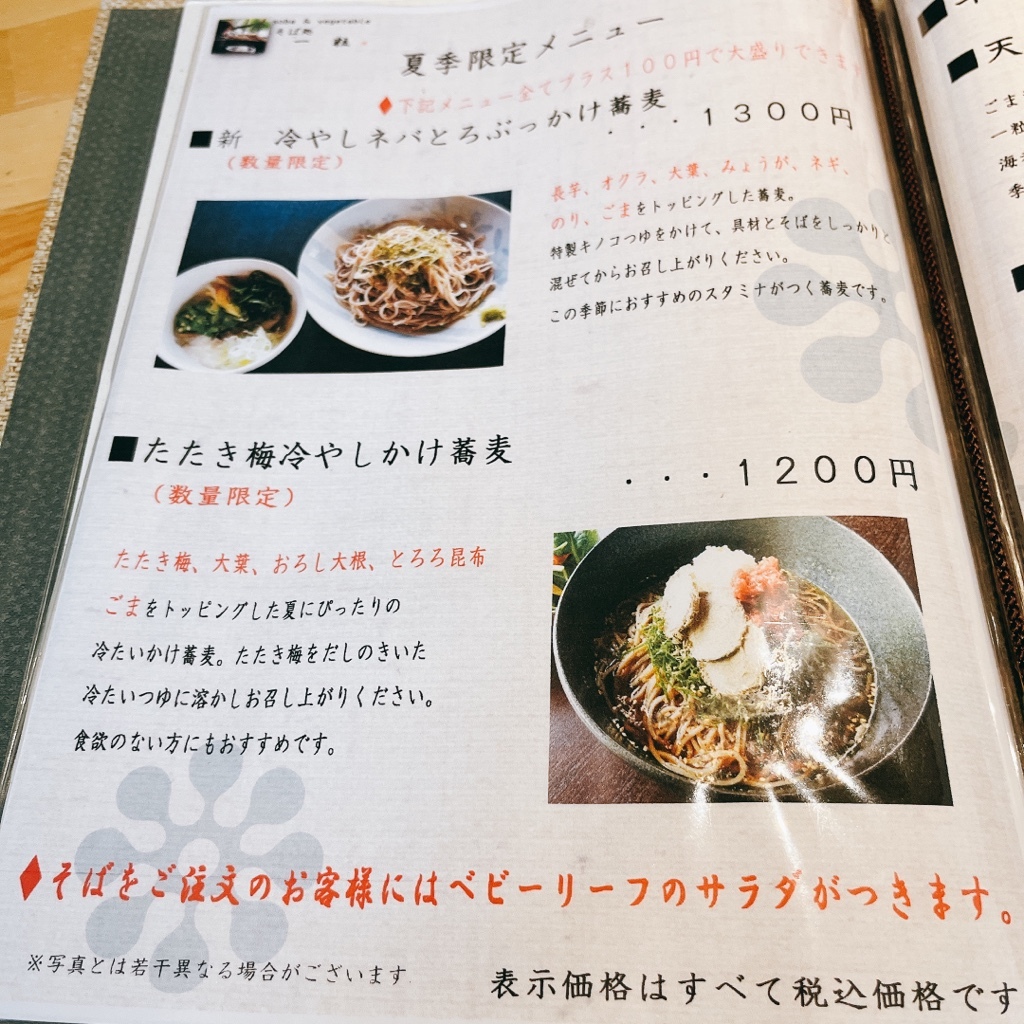 soba & vegetable
そば処
一 粒
夏季限定メニュー
♦下記メニュー全てプラス100円で大盛りできま
■新 冷やしネバとろぶっかけ蕎麦 ・・・1300円
(数量限定)
長芋、オクラ、大葉、みょうが、ネギ、
のり、ごまをトッピングした蕎麦。
特製キノコつゆをかけて、具材とそばをしっかりと
混ぜてからお召し上がりください。
この季節におすすめのスタミナがつく蕎麦です。
■たたき梅冷やしかけ蕎麦 ・・・1200円
(数量限定)
たたき梅、大葉、おろし大根、とろろ昆布
ごまをトッピングした夏にぴったりの
冷たいかけ蕎麦。たたき梅をだしのきいた
冷たいつゆに溶かしお召し上がりください。
食欲のない方にもおすすめです。
♦そばをご注文のお客様にはベビーリーフのサラダがつきます。
※写真とは若干異なる場合がございます.
表示価格はすべて税込価格です
■天
ごま
一粒
海
季